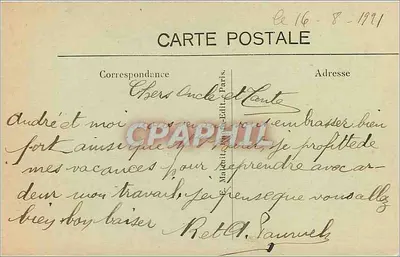 le 16 - 8 - 1921
CARTE POSTALE
Correspondance
Adresse
Chers Oncle et Tante
André et moi embrasser bien
fort ainsi que je profite de
mes vacances pour reprendre avec ar-
deur mon travail. Je pense que vous allez
bien bon baiser
R et A.
CPAPHIL
Edit., Paris.